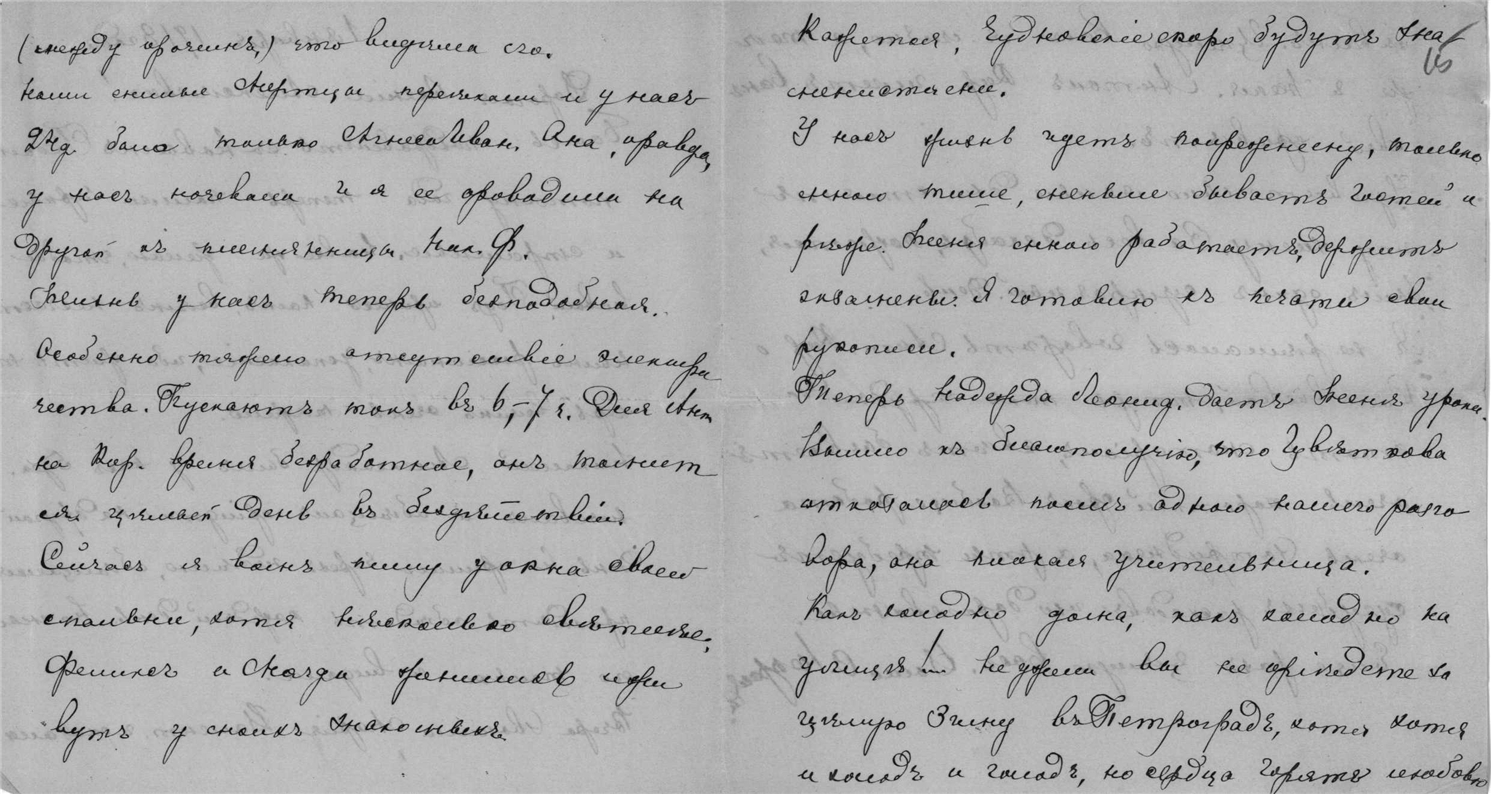 (между прочимъ,) что видѣла его.
Наши милые Мертцы переѣхали и у насъ
24 д. было только Агнеса Иван. Она, правда,
у насъ ночевала и я ее проводила на
другой къ племянницѣ Ник. Ф.
Жизнь у насъ теперь безподобная.
Особенно тяжело отсутствіе электри
чества. Пускаютъ токъ въ 6,–7 ч. Для Ант
на Кар. время безработное, онъ томит
ся цѣлый день въ бездѣйствіи.
Сейчасъ я вамъ пишу у окна своей
спальни, хотя нѣсколько свѣтлѣе.
Феликсъ и Магда женились и жи
вутъ у своихъ знакомыхъ.
Кажется, Чудновскіе скоро будутъ зна
менитыми.
У насъ жизнь идетъ попрежнему, только
много тише, меньше бываетъ гостей и
рѣже. Женя много работаетъ, держитъ
экзамены. Я готовлю къ печати свои
рукописи.
Теперь Надежда Леонид. даетъ Женѣ уроки.
Вышло къ благополучію, что Цвѣткова
отказалась послѣ одного нашего разго
вора, она плохая учительница.
Какъ холодно дома, какъ холодно на
улицѣ!... Неужели вы не пріѣдете на
цѣлую зиму въ Петроградъ, хотя хотя
и холодъ и голодъ, но сердца горятъ любовью